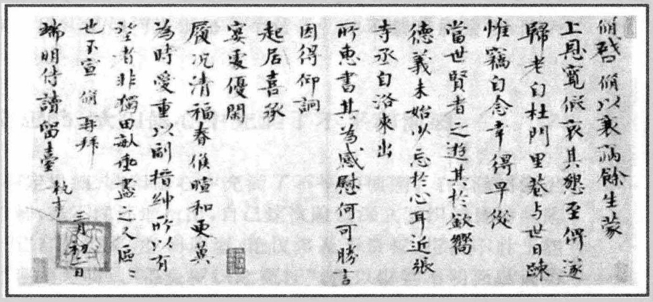 修啓修以衰病餘生蒙
上恩寬假哀其懇至俾遂
歸老自杜門里巷與世日疎
惟竊自念幸得早從
當世賢者之遊其於欽嚮
德義未始少忘於心耳近張
寺丞自洛來出
所惠書其為感慰何可勝言
因得仰詢
起居喜承
宴處優閑
履況清福春候暄和更冀
為時愛重以副搢紳所以有
望者非獨田畝垂盡之人區〻
也不宣 修再拜
三月初二日
端明侍讀留臺 執事